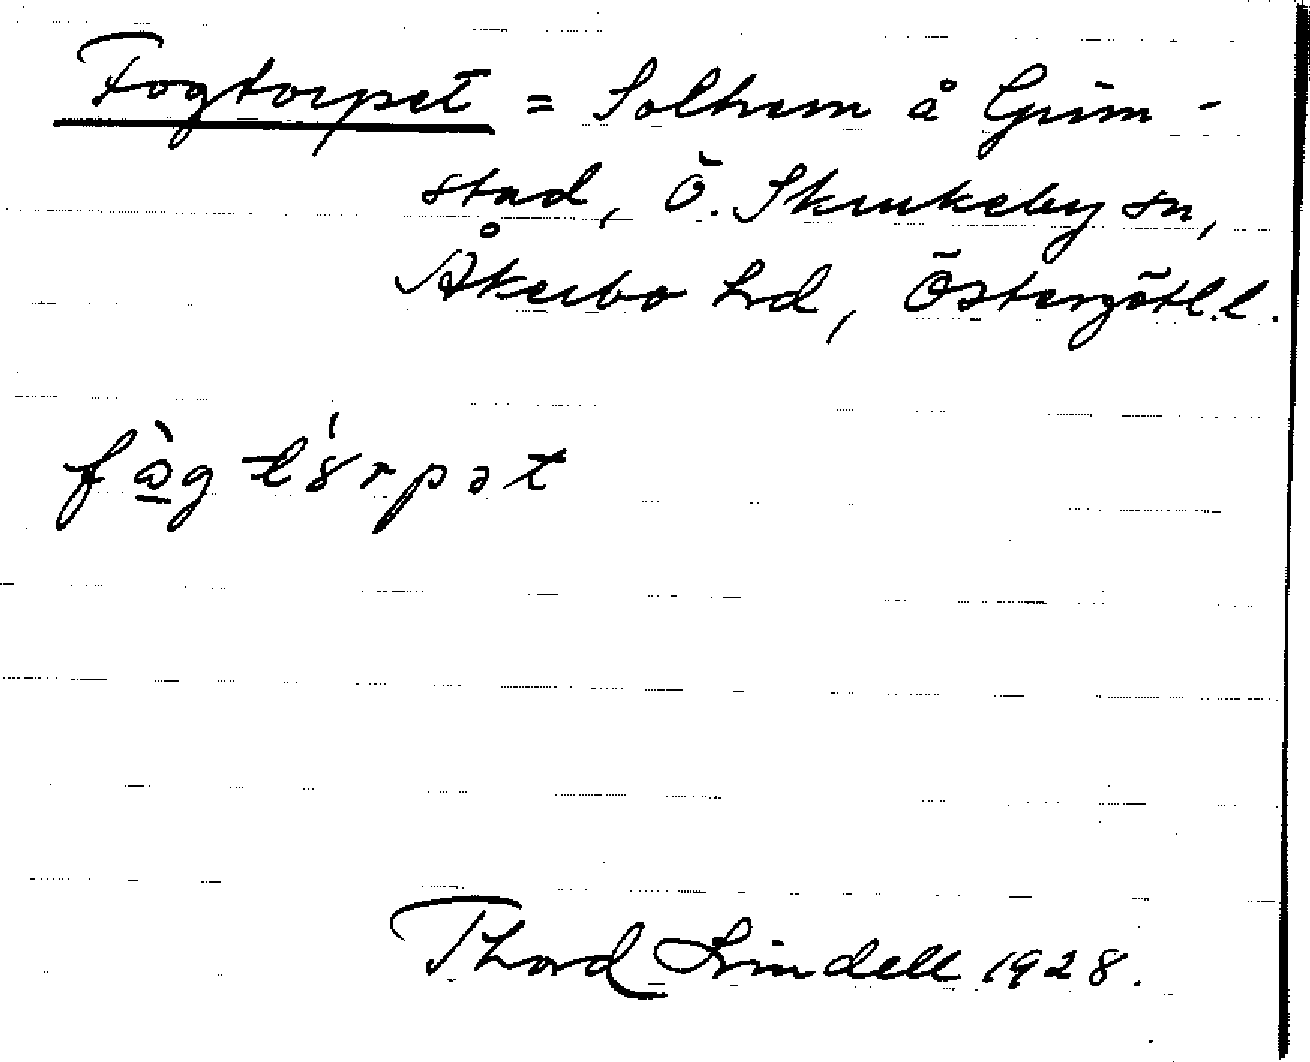 Fogtorpet = Solhem å Grim-
stad, Ö. Skrukeby sn,
Åkerbo hd, Östergötl.l.
Thord Lindell 1928.